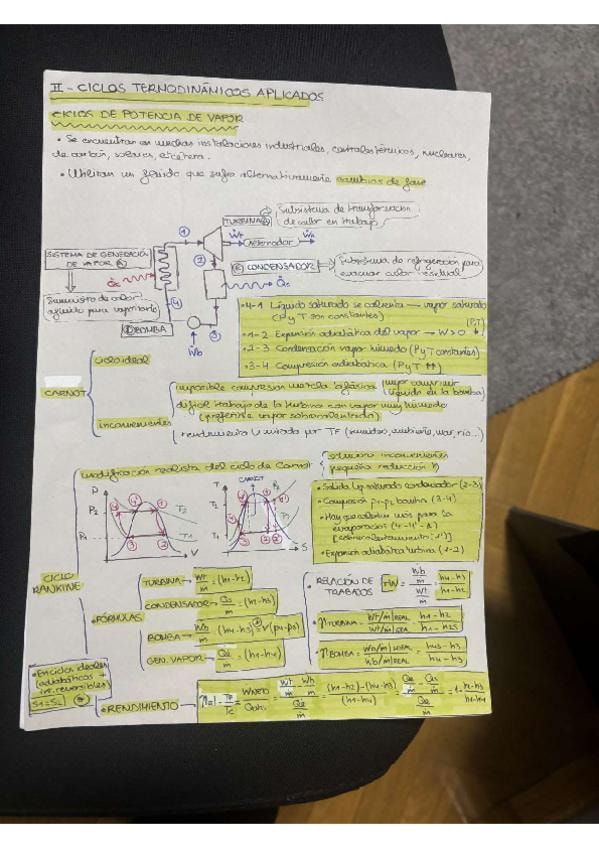 II - CICLOS TERMODINÁMICOS APLICADOS
CICLOS DE POTENCIA DE VAPOR
• Se encuentran en muchas instalaciones industriales, centrales térmicas, nucleares,
de carbón, solares, etcétera.
• Utilizan un fluido que sufre alternativamente cambios de fase
TURBINA
Subsistema de transformación
de calor en trabajo
Alternador
SISTEMA DE GENERACIÓN
DE VAPOR
CONDENSADOR
Subsistema de refrigeración para
evacuar calor residual
Suministro de calor
para vaporizarlo
BOMBA
1
2
3
4
• 4-1 Líquido saturado se calienta → vapor saturado
(P y T son constantes)
• 1-2 Expansión adiabática del vapor → W>0 (P,T) ↓
• 2-3 Condensación vapor húmedo (P y T constantes)
• 3-4 Compresión adiabática (P y T ↑↑)
CARNOT
ciclo ideal
inconvenientes
imposible conversión mezcla bifásica
líquido en la bomba)
difícil trabajo de la turbina con vapor muy húmedo
(preferible vapor sobrecalentado)
rendimiento limitado por TF
modificación realista del ciclo de Carnot
soluciona inconvenientes
pequeña reducción η
CARNOT
P
P2
P1
T2
T1
V
T
S
• Salida líq saturado condensador (2-3)
• Compresión p1-p2 bomba (3-4)
• Hay que calentar más para la
evaporación (4-4'-1)
[sobrecalentamiento: 1']
• Expansión adiabática turbina (1-2)
CICLO
RANKINE
FÓRMULAS
TURBINA → Ẇt/ṁ = (h1-h2)
CONDENSADOR → Q̇s/ṁ = (h2-h3)
BOMBA → Ẇb/ṁ = (h4-h3) = v(p4-p3)
GEN. VAPOR → Q̇e/ṁ = (h1-h4)
• RELACIÓN DE
TRABAJOS
rW = (Ẇb/ṁ)/(Ẇt/ṁ) = (h4-h3)/(h1-h2)
• ηTURBINA = (Wt/m)REAL/(Wt/m)IDEAL = (h1-h2)/(h1-h2s)
• ηBOMBA = (Wb/m)IDEAL/(Wb/m)REAL = (h4s-h3)/(h4-h3)
• En ciclo ideal
(adiabáticos +
int. reversibles)
S1=S2
• RENDIMIENTO